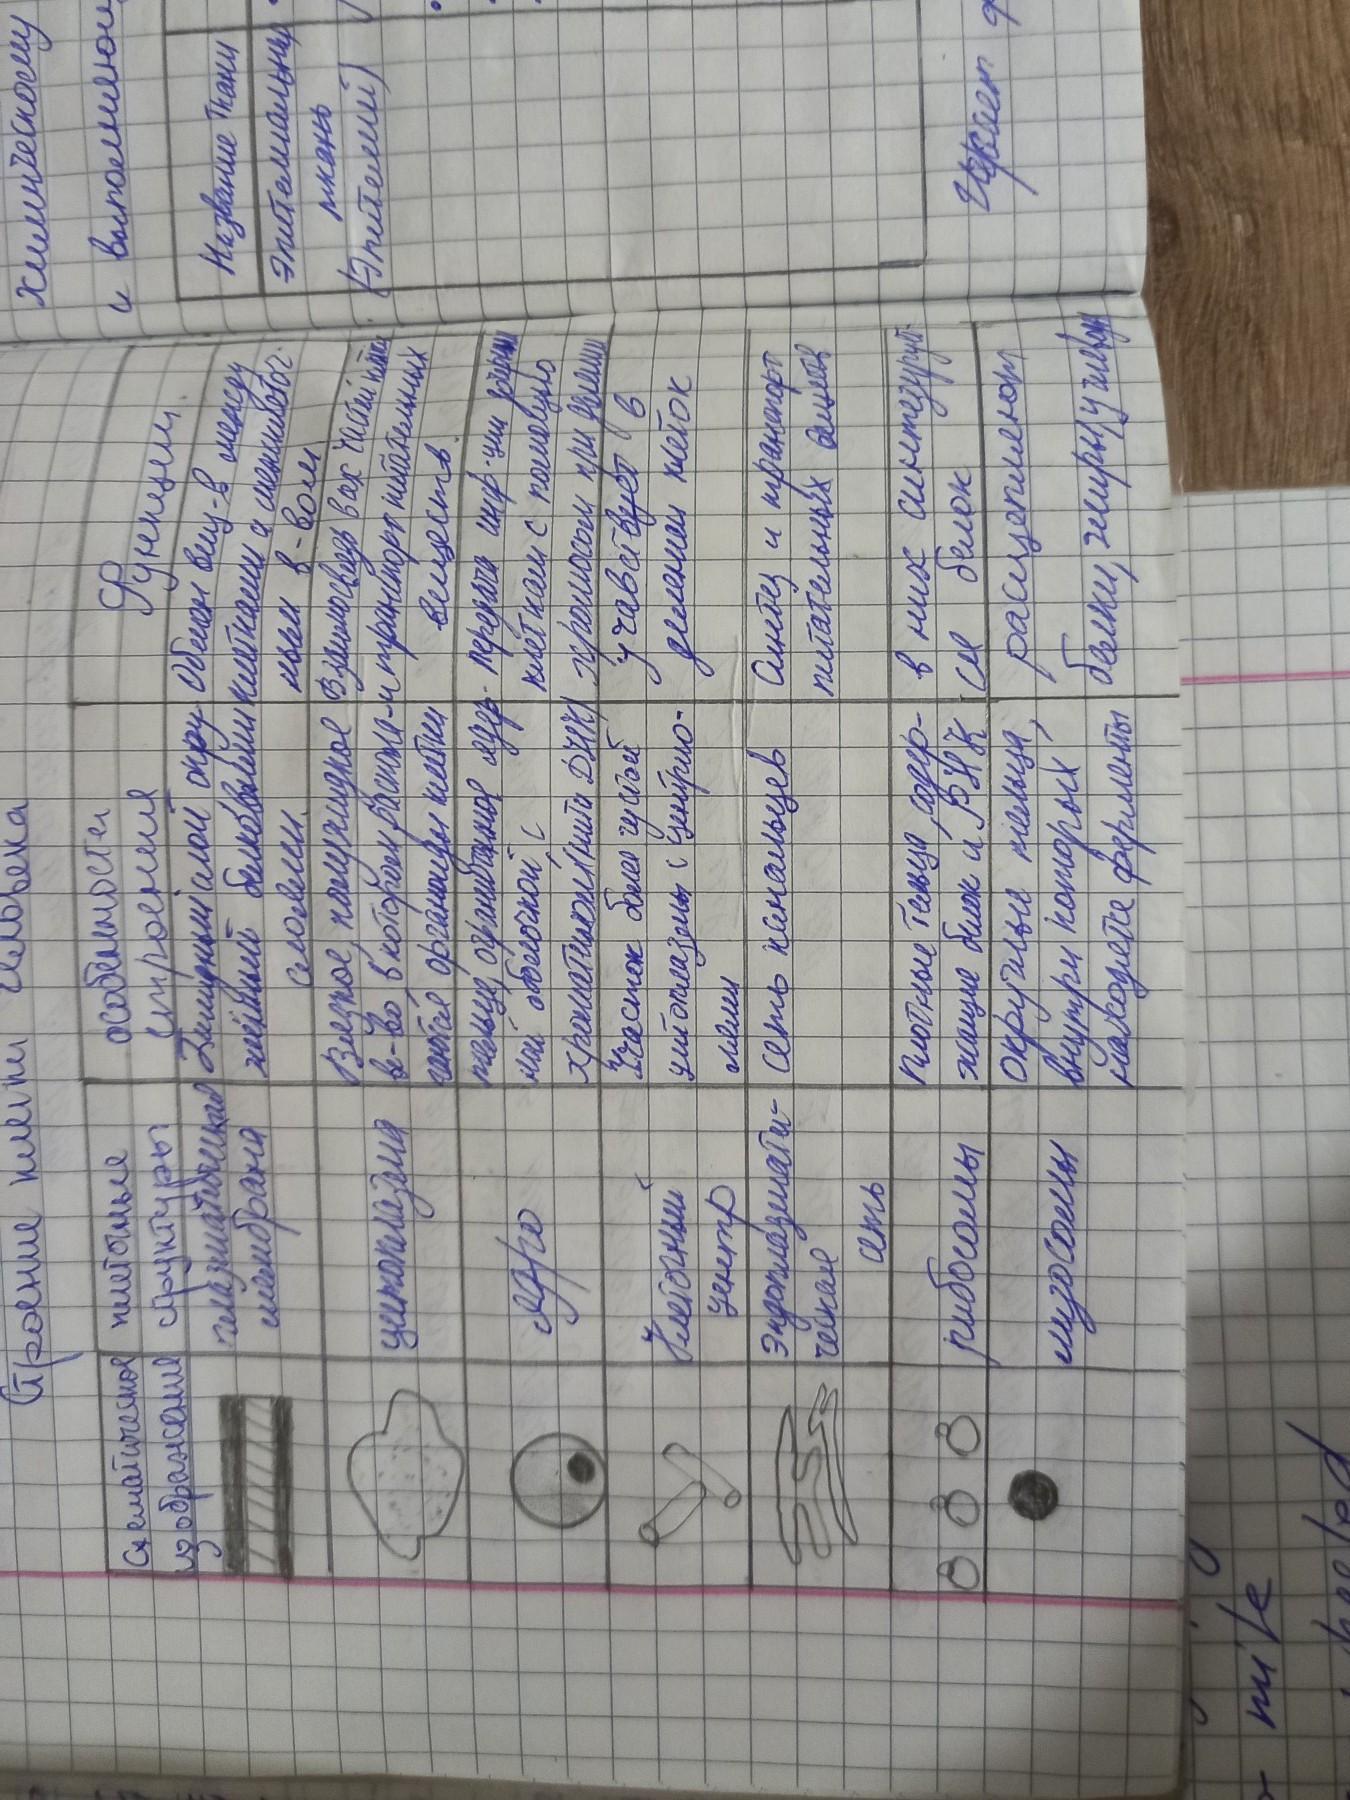 Строение клетки человека
Схематичное
изображение
клеточные
структуры
особенности
строения
Функции
плазматическая
мембрана
Билипидный слой окру-
жённый белковыми
слоями
Обмен вещ-в между
клетками и межклеточ-
ным в-вом
цитоплазма
Вязкое, полужидкое
в-во, в котором располо-
органоиды клетки
Взаимосвязь всех частей
транспорт питательных
веществ.
Ядро
тельце, ограниченное ядер-
ной оболочкой, с
хроматином (нити ДНК)
передача инф-ции
клеткам с помощью
хромосом при делении
Клеточный
центр
Участок более густой
цитоплазмы с центрио-
лями
участвует в
делении клеток
Эндоплазмати-
ческая
сеть
сеть канальцев
Синтез и транспорт
питательных веществ
рибосомы
плотные тельца, содер-
жащие белок и РНК
в них синтезирует
ся белок
лизосомы
округлые тельца,
внутри которых
находятся ферменты
расщепляют
белки, жиры, углеводы
химическому
и выполняющ
Название ткани
Эпителиальная
ткань
(Эпителий)
mile